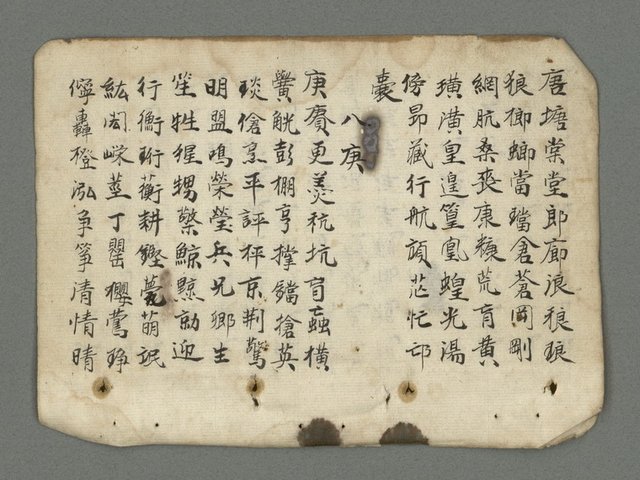 唐塘棠堂郎廊浪稂琅
狼榔螂當璫倉蒼岡剛
網肮桑喪康糠荒肓黄
璜潢皇遑篁凰蝗光湯
傍昴藏行航頏茫忙邙
囊
八庚
庚賡更羹秔坑盲蝱横
黌觥彭棚亨撑鐺搶英
琰傖烹平評枰京荆驚
明盟鳴榮瑩兵兄卿生
笙牲猩甥檠鯨黥勍迎
行衡珩蘅耕鏗甍萌氓
紘閎嶸莖丁罌櫻鶯琤
儜轟橙泓争箏清情晴